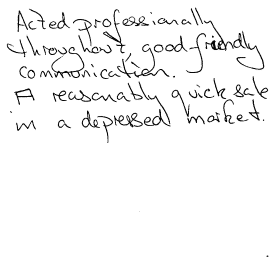 Acted professionally
throughout, good friendly
communication.
A reasonably quick sale
in a depressed market.